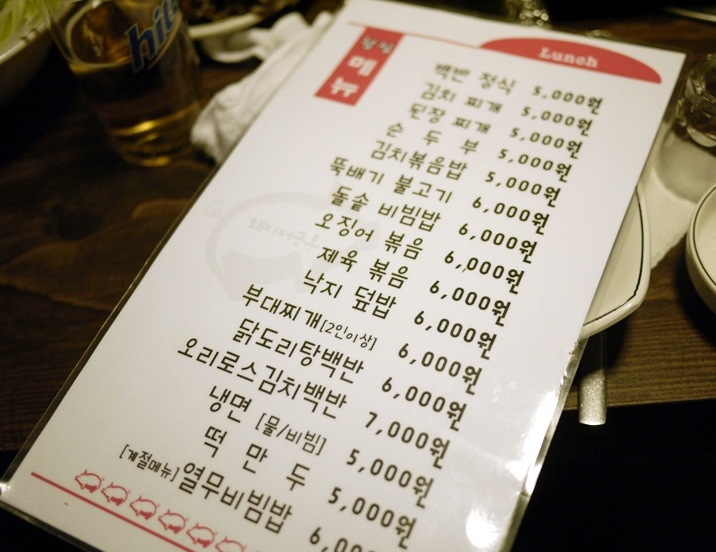 Lunch
할밥 메뉴
백반 정식 5,000원
김치 찌개 5,000원
된장 찌개 5,000원
순 두 부 5,000원
김치볶음밥 5,000원
뚝배기 불고기 6,000원
돌솥 비빔밥 6,000원
오징어 볶음 6,000원
제육 볶음 6,000원
낙지 덮밥 6,000원
부대찌개[2인이상] 6,000원
닭도리탕백반 6,000원
오리로스김치백반 7,000원
냉면 [물/비빔] 5,000원
떡 만 두 5,000원
[계절메뉴]열무비빔밥 6,000
hite